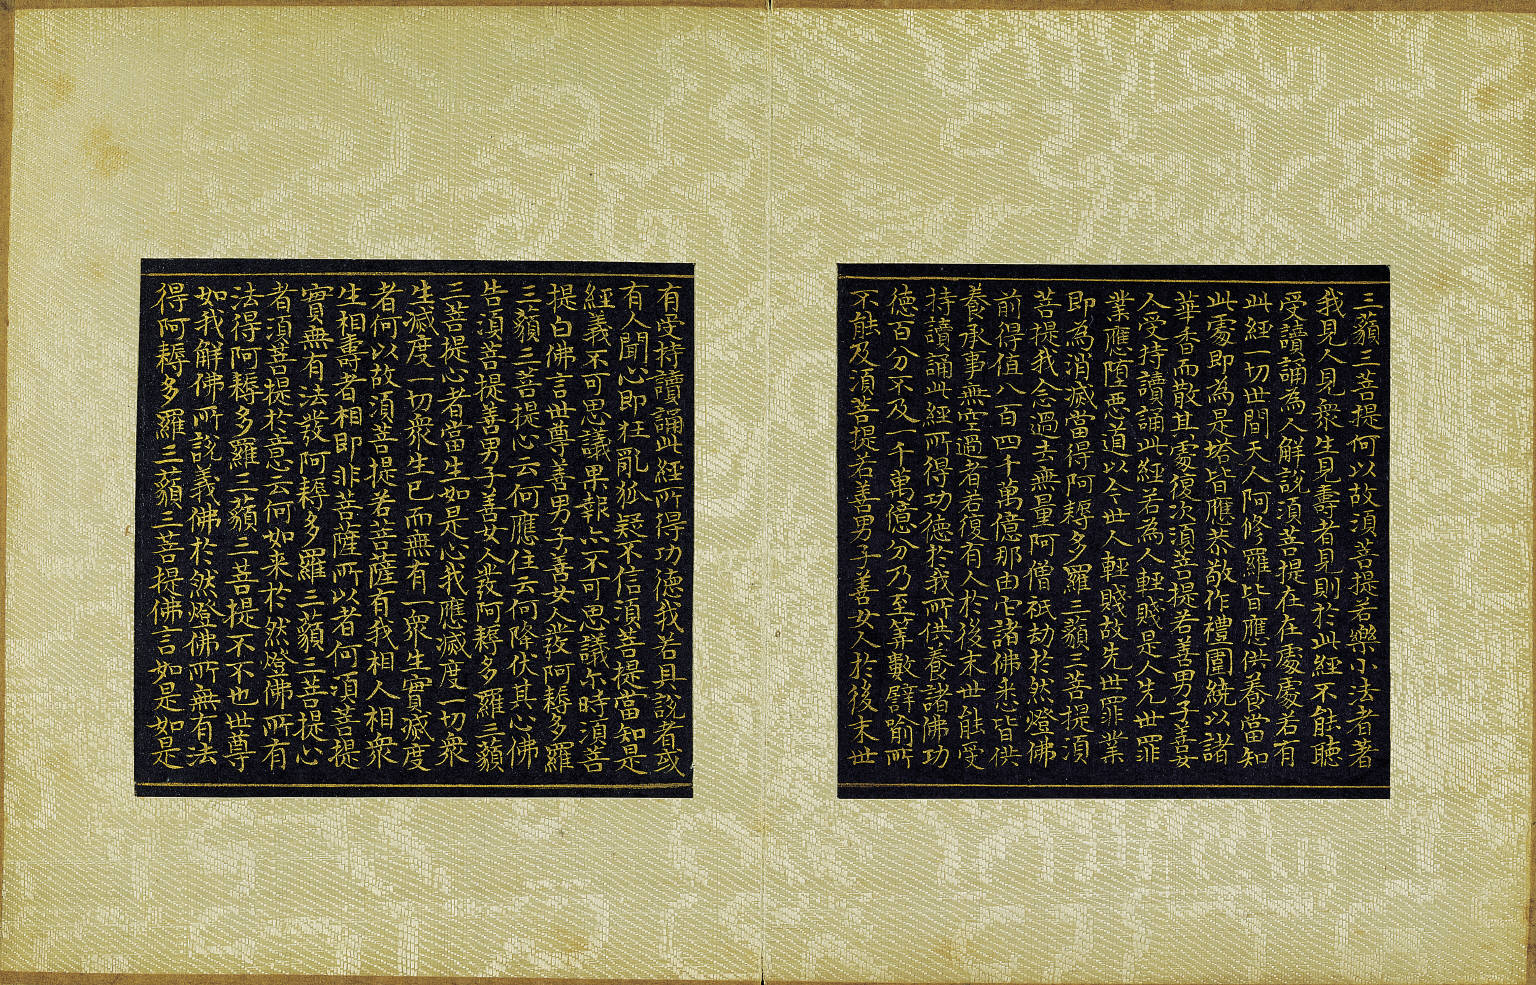 三藐三菩提何以故須菩提若樂小法者著
我見人見衆生見壽者見則於此經不能聽
受讀誦為人解說須菩提在在處處若有
此經一切世間天人阿修羅皆應供養當知
此處即為是塔皆應恭敬作禮圍繞以諸
華香而散其處復次須菩提若善男子善女
人受持讀誦此經若為人輕賤是人先世罪
業應墮惡道以今世人輕賤故先世罪業
即為消滅當得阿耨多羅三藐三菩提須
菩提我念過去無量阿僧祇劫於然燈佛
前得值八百四千萬億那由它諸佛悉皆供
養承事無空過者若復有人於後末世能受
持讀誦此經所得功德於我所供養諸佛功
德百分不及一千萬億分乃至筭數譬喻所
不能及須菩提若善男子善女人於後末世
有受持讀誦此經所得功德我若具說者或
有人聞心即狂亂狐疑不信須菩提當知是
經義不可思議果報亦不可思議尒時須菩
提白佛言世尊善男子善女人發阿耨多羅
三藐三菩提心云何應住云何降伏其心佛
告須菩提善男子善女人發阿耨多羅三藐
三菩提心者當生如是心我應滅度一切衆
生滅度一切衆生已而無有一衆生實滅度
者何以故須菩提若菩薩有我相人相衆
生相壽者相即非菩薩所以者何須菩提
實無有法發阿耨多羅三藐三菩提心
者須菩提於意云何如来於然燈佛所有
法得阿耨多羅三藐三菩提不不也世尊
如我解佛所說義佛於然燈佛所無有法
得阿耨多羅三藐三菩提佛言如是如是